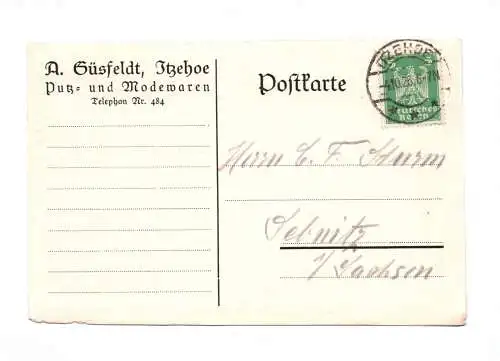 A. Güsfeldt, Itzehoe
Putz- und Modewaren
Telephon Nr. 484
Postkarte
ITZEHOE
5
Deutsches
Reich
Herrn C. F. Sturm
Sebnitz
i/Sachsen